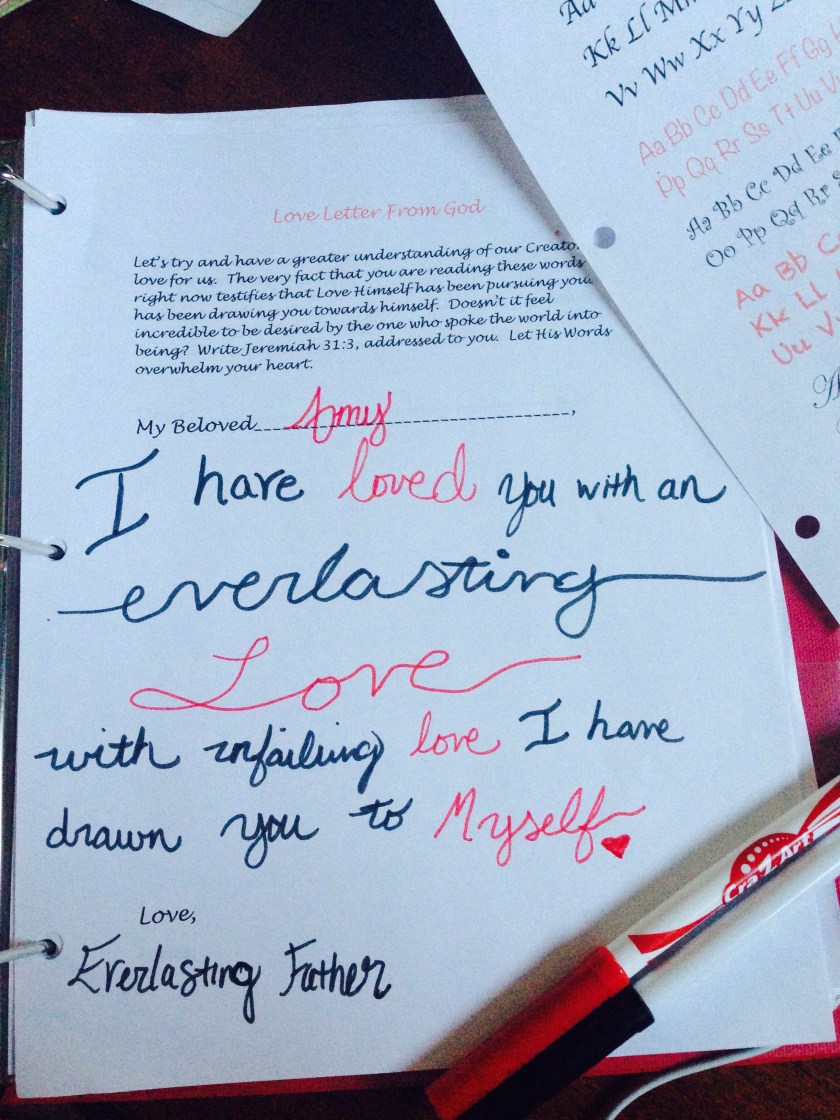 Aa
Kk Ll
Vv Ww Xx Yy
Aa Bb Cc Dd Ee Ff Gg
Pp Qq Rr Ss Tt Uu
Aa Bb Cc Dd Ee
Oo Pp Qq Rr
Aa Bb
Kk Ll
Uu
Love Letter From God
Let's try and have a greater understanding of our Creato
love for us. The very fact that you are reading these words
right now testifies that Love Himself has been pursuing you.
has been drawing you towards himself. Doesn't it feel
incredible to be desired by the one who spoke the world into
being? Write Jeremiah 31:3, addressed to you. Let His Words
overwhelm your heart.
My Beloved Amy,
I have loved you with an
everlasting
Love
with unfailing love I have
drawn you to Myself
Love,
Everlasting Father
Cra-Z-Art